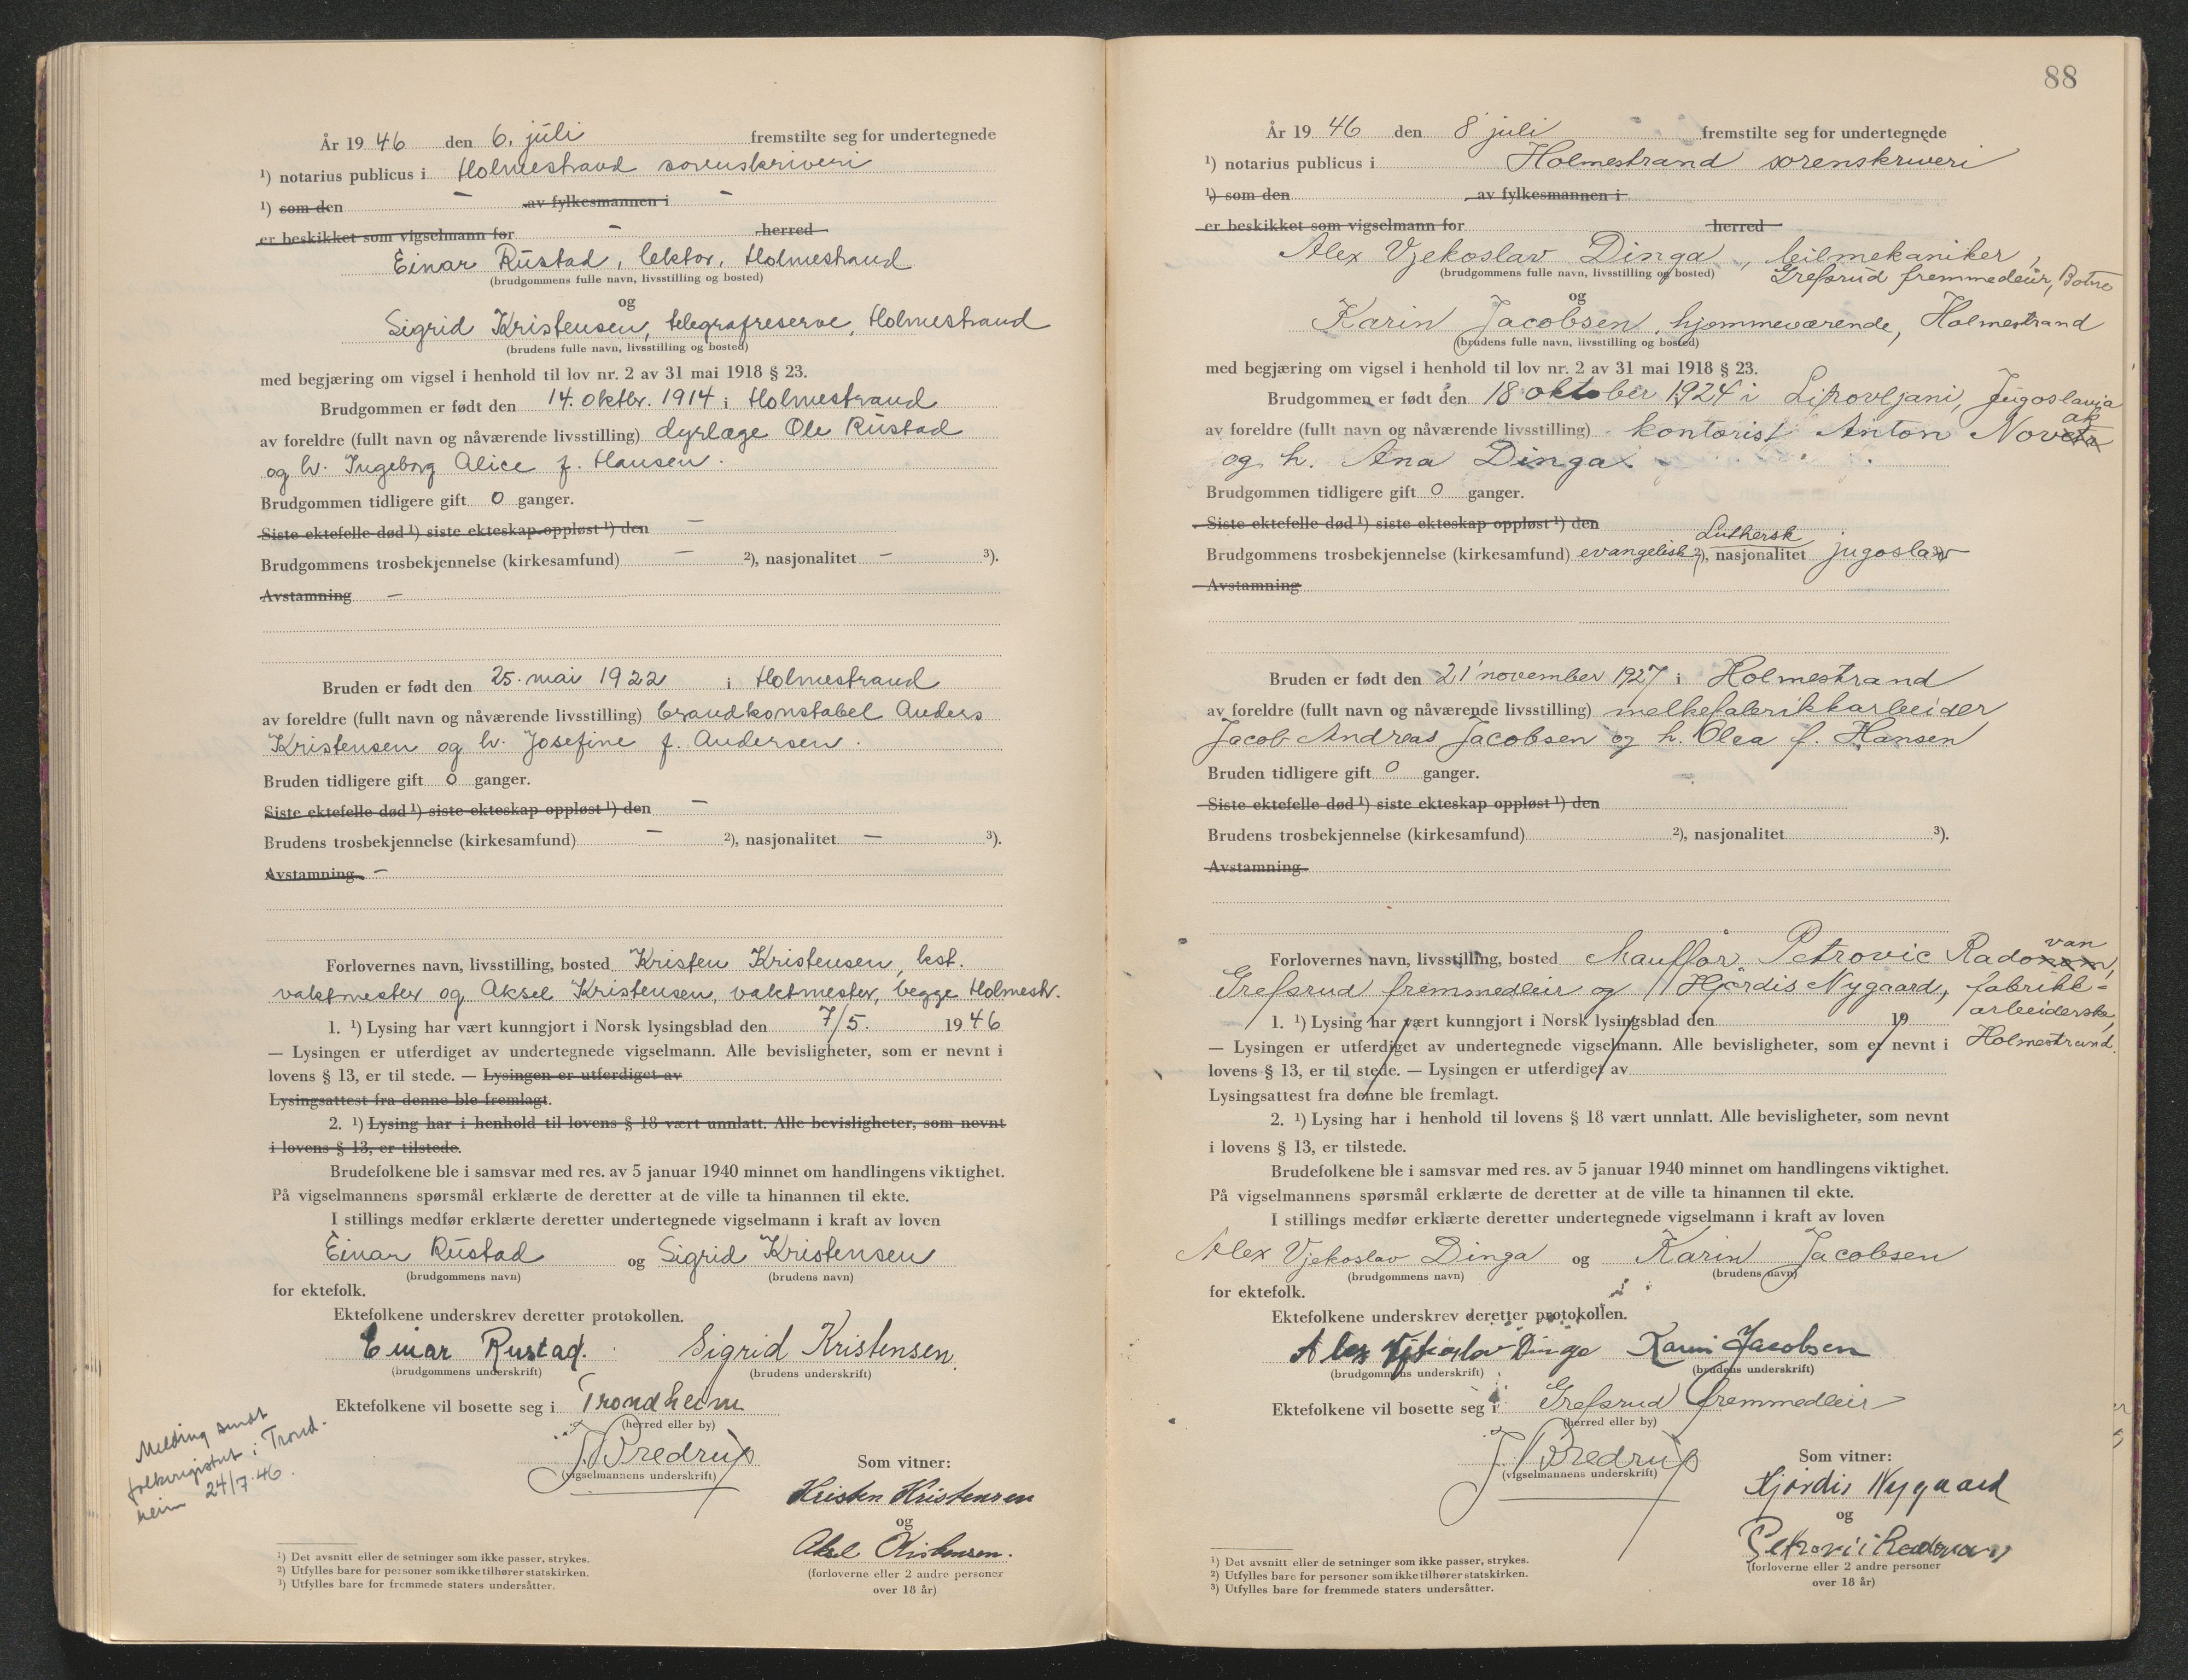 År 1946 den 6. juli fremstilte seg for undertegnede
¹) notarius publicus i Holmestrand sorenskriveri
¹) som den – av fylkesmannen i –
er beskikket som vigselmann for – herred
Einar Rustad, lektor, Holmestrand
(brudgommens fulle navn, livsstilling og bosted)
og
Sigrid Kristensen, telegrafreserve, Holmestrand
(brudens fulle navn, livsstilling og bosted)
med begjæring om vigsel i henhold til lov nr. 2 av 31 mai 1918 § 23.
Brudgommen er født den 14. oktbr. 1914 i Holmestrand
av foreldre (fullt navn og nåværende livsstilling) dyrlæge Ole Rustad
og h. Ingeborg Alice f. Hansen.
Brudgommen tidligere gift 0 ganger.
Siste ektefelle død ¹) siste ekteskap oppløst ¹) den –
Brudgommens trosbekjennelse (kirkesamfund) – ²), nasjonalitet – ³).
Avstamning –
Bruden er født den 25. mai 1922 i Holmestrand
av foreldre (fullt navn og nåværende livsstilling) brandkonstabel Anders
Kristensen og h. Josefine f. Andersen.
Bruden tidligere gift 0 ganger.
Siste ektefelle død ¹) siste ekteskap oppløst ¹) den –
Brudens trosbekjennelse (kirkesamfund) – ²), nasjonalitet – ³).
Avstamning –
Forlovernes navn, livsstilling, bosted Kristen Kristensen, best.
vaktmester og Aksel Kristensen, vaktmester, begge Holmestr.
1. ¹) Lysing har vært kunngjort i Norsk lysingsblad den 7/5. 1946
— Lysingen er utferdiget av undertegnede vigselmann. Alle bevisligheter, som er nevnt i
lovens § 13, er til stede. — Lysingen er utferdiget av
Lysingsattest fra denne ble fremlagt.
2. ¹) Lysing har i henhold til lovens § 18 vært unnlatt. Alle bevisligheter, som nevnt
i lovens § 13, er tilstede.
Brudefolkene ble i samsvar med res. av 5 januar 1940 minnet om handlingens viktighet.
På vigselmannens spørsmål erklærte de deretter at de ville ta hinannen til ekte.
I stillings medfør erklærte deretter undertegnede vigselmann i kraft av loven
Einar Rustad og Sigrid Kristensen
(brudgommens navn) (brudens navn)
for ektefolk.
Ektefolkene underskrev deretter protokollen.
Einar Rustad. Sigrid Kristensen.
(brudgommens underskrift) (brudens underskrift)
Ektefolkene vil bosette seg i Trondheim
(herred eller by)
J. Bredrup
(vigselmannens underskrift)
Som vitner:
Kristen Kristensen
og
Aksel Kristensen.
(forloverne eller 2 andre personer
over 18 år)
Melding sendt
folkeregistret i Trond-
heim 24/7.46.
¹) Det avsnitt eller de setninger som ikke passer, strykes.
²) Utfylles bare for personer som ikke tilhører statskirken.
³) Utfylles bare for fremmede staters undersåtter.
88
År 1946 den 8 juli fremstilte seg for undertegnede
¹) notarius publicus i Holmestrand sorenskriveri
¹) som den av fylkesmannen i
er beskikket som vigselmann for herred
Alex Vjekoslav Dinga, bilmekaniker,
(brudgommens fulle navn, livsstilling og bosted) Grefsrud fremmedleir, Botne
og
Karin Jacobsen, hjemmeværende, Holmestrand
(brudens fulle navn, livsstilling og bosted)
med begjæring om vigsel i henhold til lov nr. 2 av 31 mai 1918 § 23.
Brudgommen er født den 18 oktober 1924 i Lipovljani, Jugoslavia
av foreldre (fullt navn og nåværende livsstilling) kontorist Anton Novak
og h. Ana Dinga.
Brudgommen tidligere gift 0 ganger.
Siste ektefelle død ¹) siste ekteskap oppløst ¹) den
Luthersk
Brudgommens trosbekjennelse (kirkesamfund) evangelisk ²), nasjonalitet jugoslav ³)
Avstamning
Bruden er født den 21 november 1927 i Holmestrand
av foreldre (fullt navn og nåværende livsstilling) melkefabrikkarbeider
Jacob Andreas Jacobsen og h. Olea f. Hansen
Bruden tidligere gift 0 ganger.
Siste ektefelle død ¹) siste ekteskap oppløst ¹) den
Brudens trosbekjennelse (kirkesamfund) ²), nasjonalitet ³).
Avstamning
Forlovernes navn, livsstilling, bosted Petrovic Radovan,
Grefsrud fremmedleir og Hjørdis Nygaard, fabrikk-
arbeiderske,
Holmestrand.
1. ¹) Lysing har vært kunngjort i Norsk lysingsblad den 19
— Lysingen er utferdiget av undertegnede vigselmann. Alle bevisligheter, som er nevnt i
lovens § 13, er til stede. — Lysingen er utferdiget av
Lysingsattest fra denne ble fremlagt.
2. ¹) Lysing har i henhold til lovens § 18 vært unnlatt. Alle bevisligheter, som nevnt
i lovens § 13, er tilstede.
Brudefolkene ble i samsvar med res. av 5 januar 1940 minnet om handlingens viktighet.
På vigselmannens spørsmål erklærte de deretter at de ville ta hinannen til ekte.
I stillings medfør erklærte deretter undertegnede vigselmann i kraft av loven
Alex Vjekoslav Dinga og Karin Jacobsen
(brudgommens navn) (brudens navn)
for ektefolk.
Ektefolkene underskrev deretter protokollen.
Alex Vjekoslav Dinga Karin Jacobsen
(brudgommens underskrift) (brudens underskrift)
Ektefolkene vil bosette seg i Grefsrud fremmedleir
(herred eller by)
J. Bredrup
(vigselmannens underskrift)
Som vitner:
Hjørdis Nygaard
og
Petrovic Radovan
(forloverne eller 2 andre personer
over 18 år)
¹) Det avsnitt eller de setninger som ikke passer, strykes.
²) Utfylles bare for personer som ikke tilhører statskirken.
³) Utfylles bare for fremmede staters undersåtter.